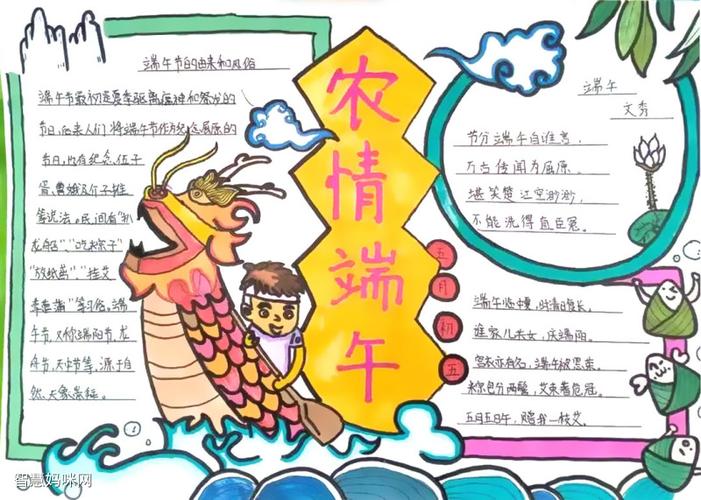 端午节的由来和风俗
端午节最初是夏季驱离瘟神和祭龙的
节日,后来人们将端午节作为纪念屈原的
节日,也有纪念伍子
胥、曹娥及介子推
等说法。民间有"扒
龙舟""吃粽子"
"放纸鸢""挂艾
草菖蒲"等习俗。端
午节,又称端阳节、龙
舟节、天中节等,源于自
然天象崇拜。
农情端午
五月初五
端午
文秀
节分端午自谁言,
万古传闻为屈原。
堪笑楚江空渺渺,
不能洗得直臣冤。
端午临中夏,时清日复长。
谁家儿女,庆端阳。
端午被恩荣。
米粽包分两髻,艾束著危冠。
五月五日午,赠我一枝艾。
智慧妈咪网